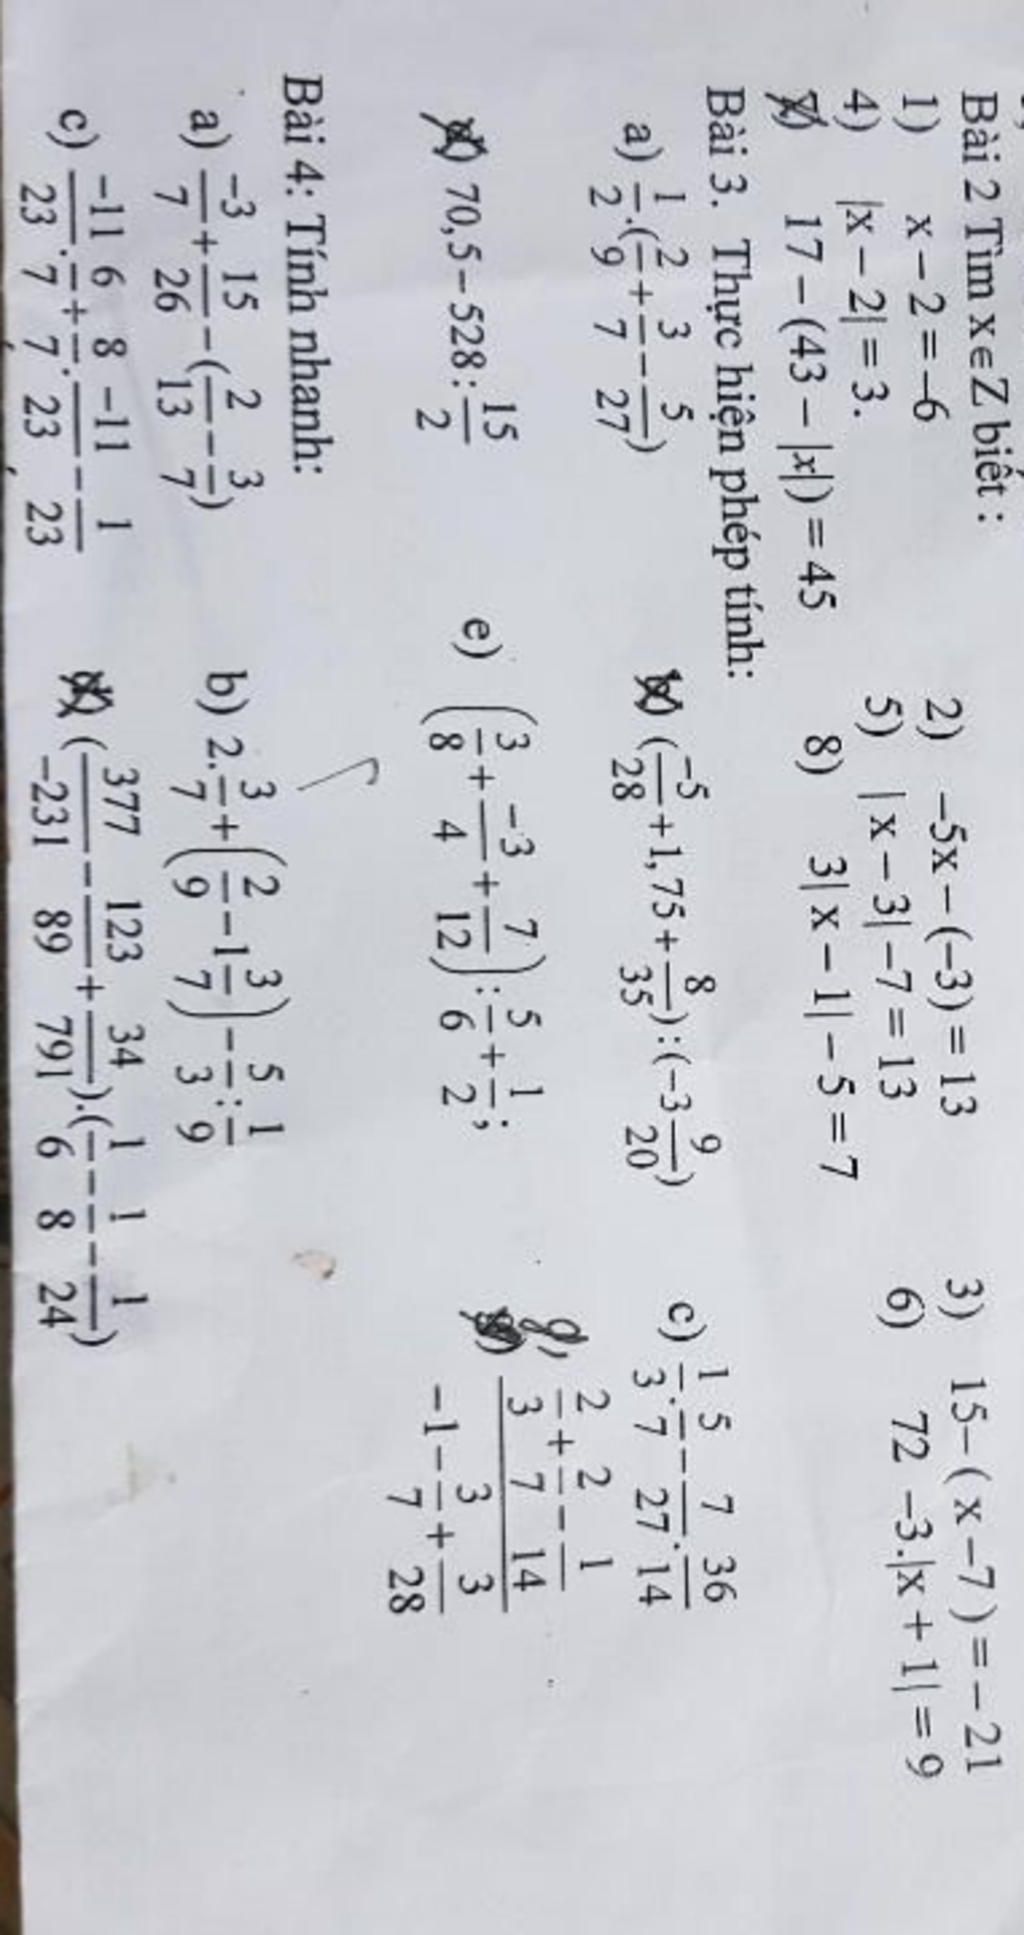 Bài 2 Tìm x∈Z biết :
1) x – 2 = –6 2) –5x – (–3) = 13 3) 15 – ( x –7 ) = – 21
4) |x – 2| = 3. 5) | x – 3| –7 = 13 6) 72 –3.|x + 1| = 9
17 – (43 – |x|) = 45 8) 3| x – 1| – 5 = 7
Bài 3. Thực hiện phép tính:
a) 1/2 . (2/9 + 3/7 – 5/27) b) (–5/28 + 1,75 + 8/35) : (–3 9/20) c) 1/3 . 5/7 – 7/27 . 36/14
d) 70,5 – 528 : 15/2 e) (3/8 + –3/4 + 7/12) : 5/6 + 1/2 ; g, (2/3 + 2/7 – 1/14)/(–1 – 3/7 + 3/28)
Bài 4: Tính nhanh:
a) –3/7 + 15/26 – (2/13 – 3/7) b) 2 . 3/7 + (2/9 – 1 3/7) – 5/3 : 1/9
c) –11/23 . 6/7 + 8/7 . –11/23 – 1/23 d) (377/–231 – 123/89 + 34/791) . (1/6 – 1/8 – 1/24)